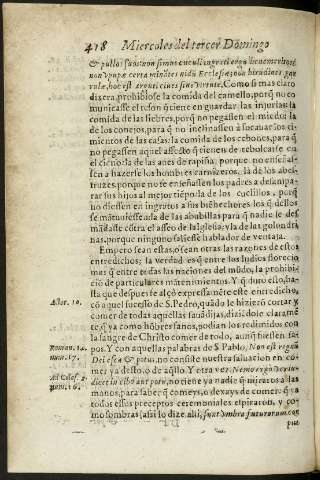 418 Miercoles del tercer Domingo
& pulloi suos non simus cuculi ingrati erga
non vpupæ cerea minãtes nidũ Ecclesiæ, non hirudines gar
rulæ, hoc est Como si mas claro
dixera, prohibiose la comida del camello, porq̃ no co
municasse el teson q̃ tiene en guardar las injurias: la
comida de las liebres, porq̃ no pegassen el miedo: la
de los conejos, para q̃ no inclinassen a socauar los ci-
mientos de las casas: la comida de los cebones, para q̃
no pegassen aquel assco q̃ tienen de rebolcarse en
el cieno: la de las aues de rapiña, porque no enseñas-
sen a hazerse los hombres carnizeros, la de los abes-
truzes, porque no te enseñassen los padres a desampa-
rar sus hijos al mejor tiẽpo: la de los cuclillos, porq̃
no diessen en ingratos a sus biẽhechores los q̃ dellos
se mãtuuiessen: la de las abubillas para q̃ nadie le des
mãdasse cõtra el asseo de la Iglesia: y la de las golondri
nas, porque ninguno saliesse hablador de ventaja.
Empero sean estas, o sean otras las razones de estos
entredichos; la verdad es q̃ entre los Iudios florecio
mas q̃ entre todas las naciones del mũdo, la prohibi-
ciõ de particulares mãtenimientos. Y q̃ duro esto, ha-
sta que despues se alçò expressamẽte este entredicho,
Actor. 10. cõ aquel sucesso de S. Pedro, quãdo le hizierõ cortar y
comer de todas aquellas sauãdijas, diziẽdole claramẽ
te, q̃ ya como hõbres sanos, podian los redimidos con
la sangre de Christo comer de todo, aunq̃ fuessen sa-
Roman. 14. pos. Y con aquellas palabras de S. Pablo, Non est regnũ
num. 17. Dei esca & potus, no consiste nuestra saluacion en co-
mer ya desto, o de aq̃llo. Y otra vez. Nemo ergo vos iu-
Ad Colos. 2. dicet in cibo aut potu, no tiene ya nadie q̃ miraros a las
num. 16. manos, para saber q̃ comeys, o dexays de comer: q̃ ya
todos essos preceptos ceremoniales espiraron, y co-
mo sombras (assi lo dize alli, sunt vmbra futurorum con
que